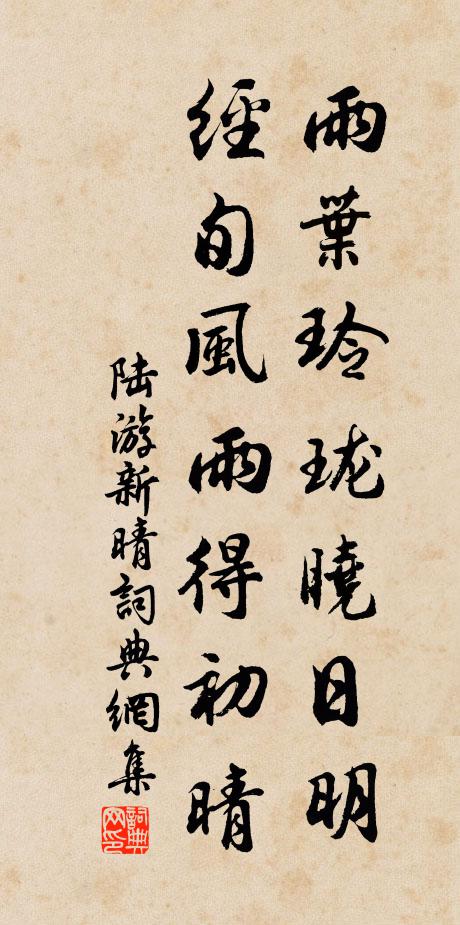 雨葉玲瓏曉日明
經旬風雨得初晴
陸游新晴詞典網集
詞典网印